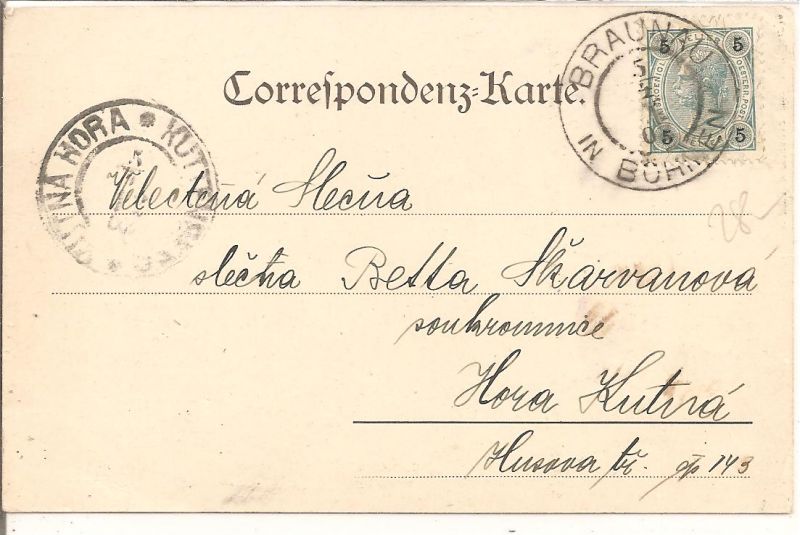 Correspondenz-Karte.
BRAUNAU
IN BÖHMEN
5 5
5 5
KUTNÁ HORA * KUTTENBERG *
Velectěná Slečna
slečna Betta Škarvanová
soukromnice
Hora Kutná
Husova tř. čp 143
28